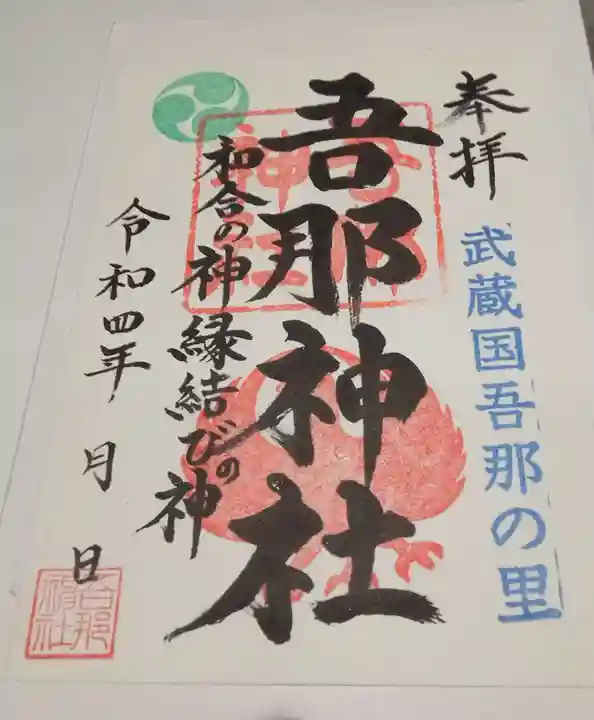 奉拝
武蔵国吾那の里
吾那神社
和合の神縁結びの神
令和四年 月 日
吾那神社